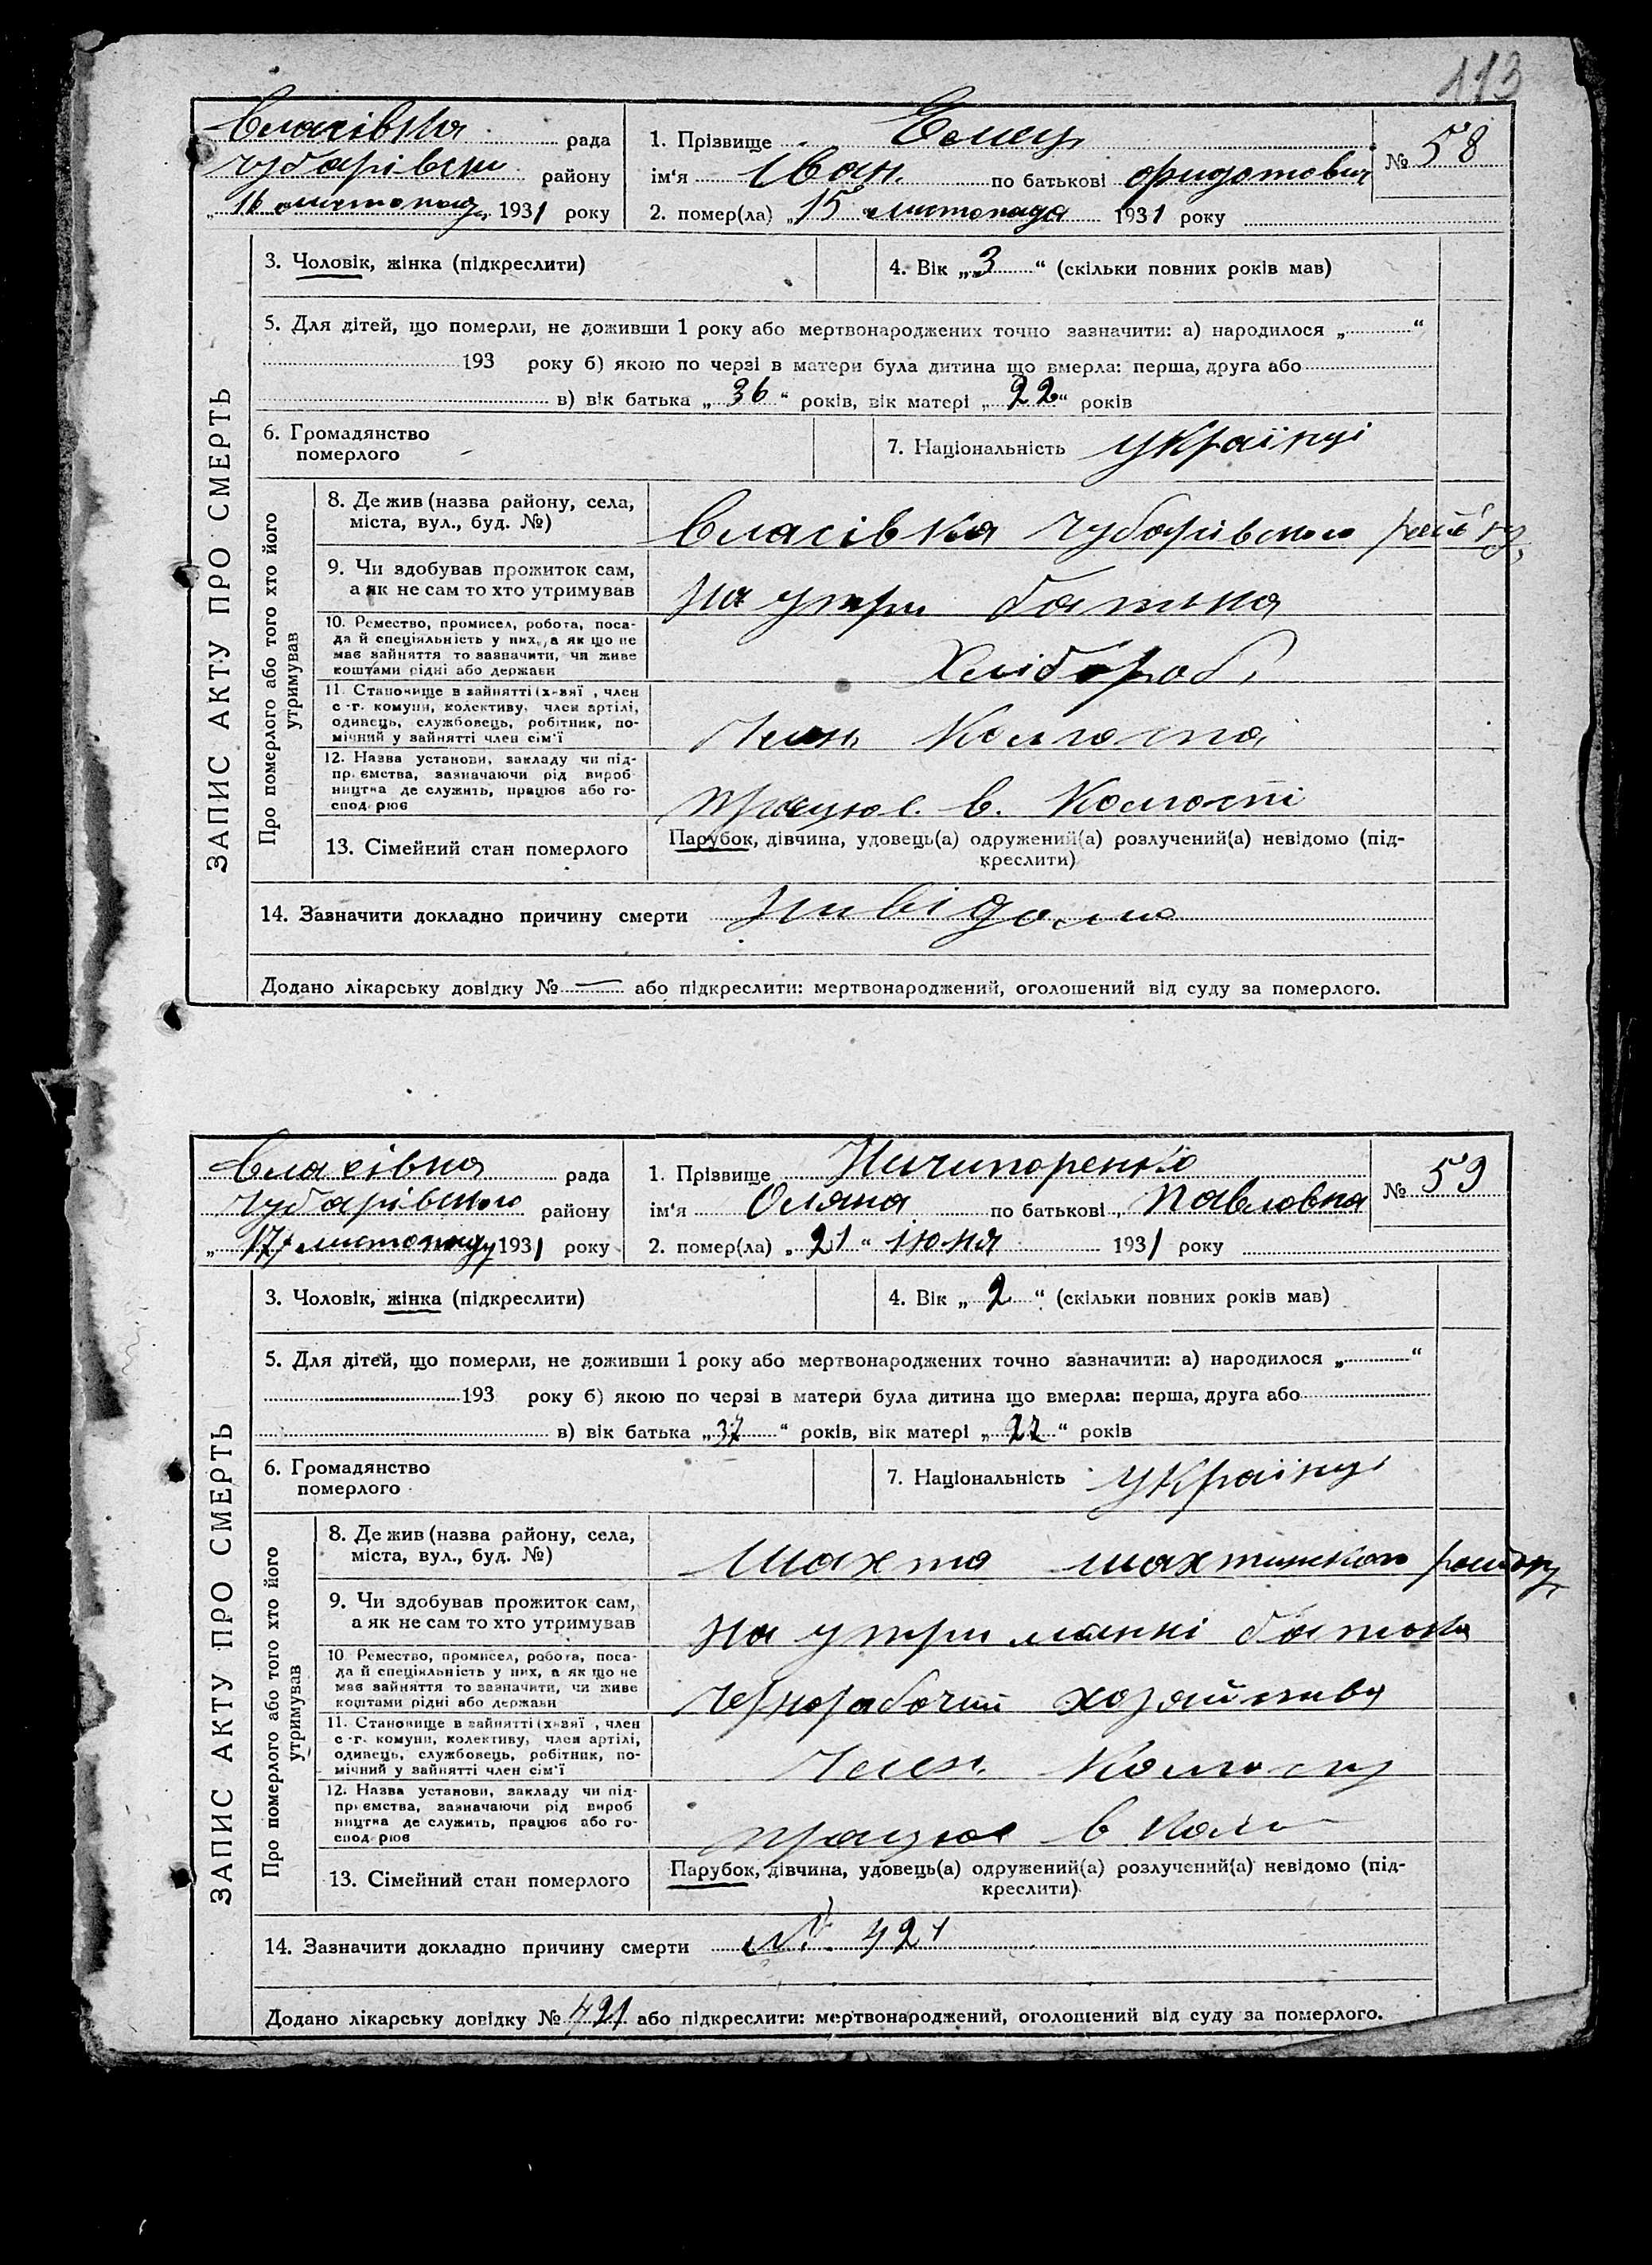 113
Власівка рада
Чубарівськ району
„ 16 листопада 1931 року
1. Прізвище Ємец
№ 58
ім'я Іван по батькові Фидотович
2. помер(ла) „15 листопада 1931 року
ЗАПИС АКТУ ПРО СМЕРТЬ
3. Чоловік, жінка (підкреслити)
4. Вік „ 3 “ (скільки повних років мав)
5. Для дітей, що померли, не доживши 1 року або мертвонароджених точно зазначити: а) народилося „ “
193 року б) якою по черзі в матери була дитина що вмерла: перша, друга або
в) вік батька „ 36 “ років, вік матері „ 22 “ років
6. Громадянство
померлого
7. Національність українці
Про померлого або того хто його
утримував
8. Де жив (назва району, села,
міста, вул., буд. №)
Власівка Чубарівського
9. Чи здобував прожиток сам,
а як не сам то хто утримував
на утри батька
10. Ремество, промисел, робота, поса-
да й спеціяльність у них, а як що не
має зайняття то зазначити, чи живе
коштами рідні або держави
Хлібороб
11. Становище в зайнятті (х-вяї , член
с -г. комуни, колективу, член артілі,
одинець, службовець, робітник, по-
мічний у зайнятті член сім'ї
Член Колгоспа
12. Назва установи, закладу чи під-
пр. ємства, зазначаючи рід вироб
ництва де служить, працює або го-
спод рює
працює в. Колгоспі
13. Сімейний стан померлого
Парубок, дівчина, удовець(а) одружений(а) розлучений(а) невідомо (під-
креслити)
14. Зазначити докладно причину смерти нивідомо
Додано лікарську довідку № — або підкреслити: мертвонароджений, оголошений від суду за померлого.
Власівка рада
Чубарівського району
„ 17 листопаду 1931 року
1. Прізвище Ничипоренко
№ 59
ім'я Оляна по батькові Павловна
2. помер(ла) „ 21 “ июня 1931 року
ЗАПИС АКТУ ПРО СМЕРТЬ
3. Чоловік, жінка (підкреслити)
4. Вік „ 2 “ (скільки повних років мав)
5. Для дітей, що померли, не доживши 1 року або мертвонароджених точно зазначити: а) народилося „ “
193 року б) якою по черзі в матери була дитина що вмерла: перша, друга або
в) вік батька „ 37 “ років, вік матері „ 27 “ років
6. Громадянство
померлого
7. Національність українці
Про померлого або того хто його
утримував
8. Де жив (назва району, села,
міста, вул., буд. №)
Шахта шахтинского
9. Чи здобував прожиток сам,
а як не сам то хто утримував
на утриманні батька
10. Ремество, промисел, робота, поса-
да й спеціяльність у них, а як що не
має зайняття то зазначити, чи живе
коштами рідні або держави
Чернорабочий хозяйства
11. Становище в зайнятті (х-вяї , член
с -г. комуни, колективу, член артілі,
одинець, службовець, робітник, по-
мічний у зайнятті член сім'ї
Член Колгоспу
12. Назва установи, закладу чи під-
пр. ємства, зазначаючи рід вироб
ництва де служить, працює або го-
спод рює
працює в
13. Сімейний стан померлого
Парубок, дівчина, удовець(а) одружений(а) розлучений(а) невідомо (під-
креслити)
14. Зазначити докладно причину смерти № 421
Додано лікарську довідку № 421 або підкреслити: мертвонароджений, оголошений від суду за померлого.